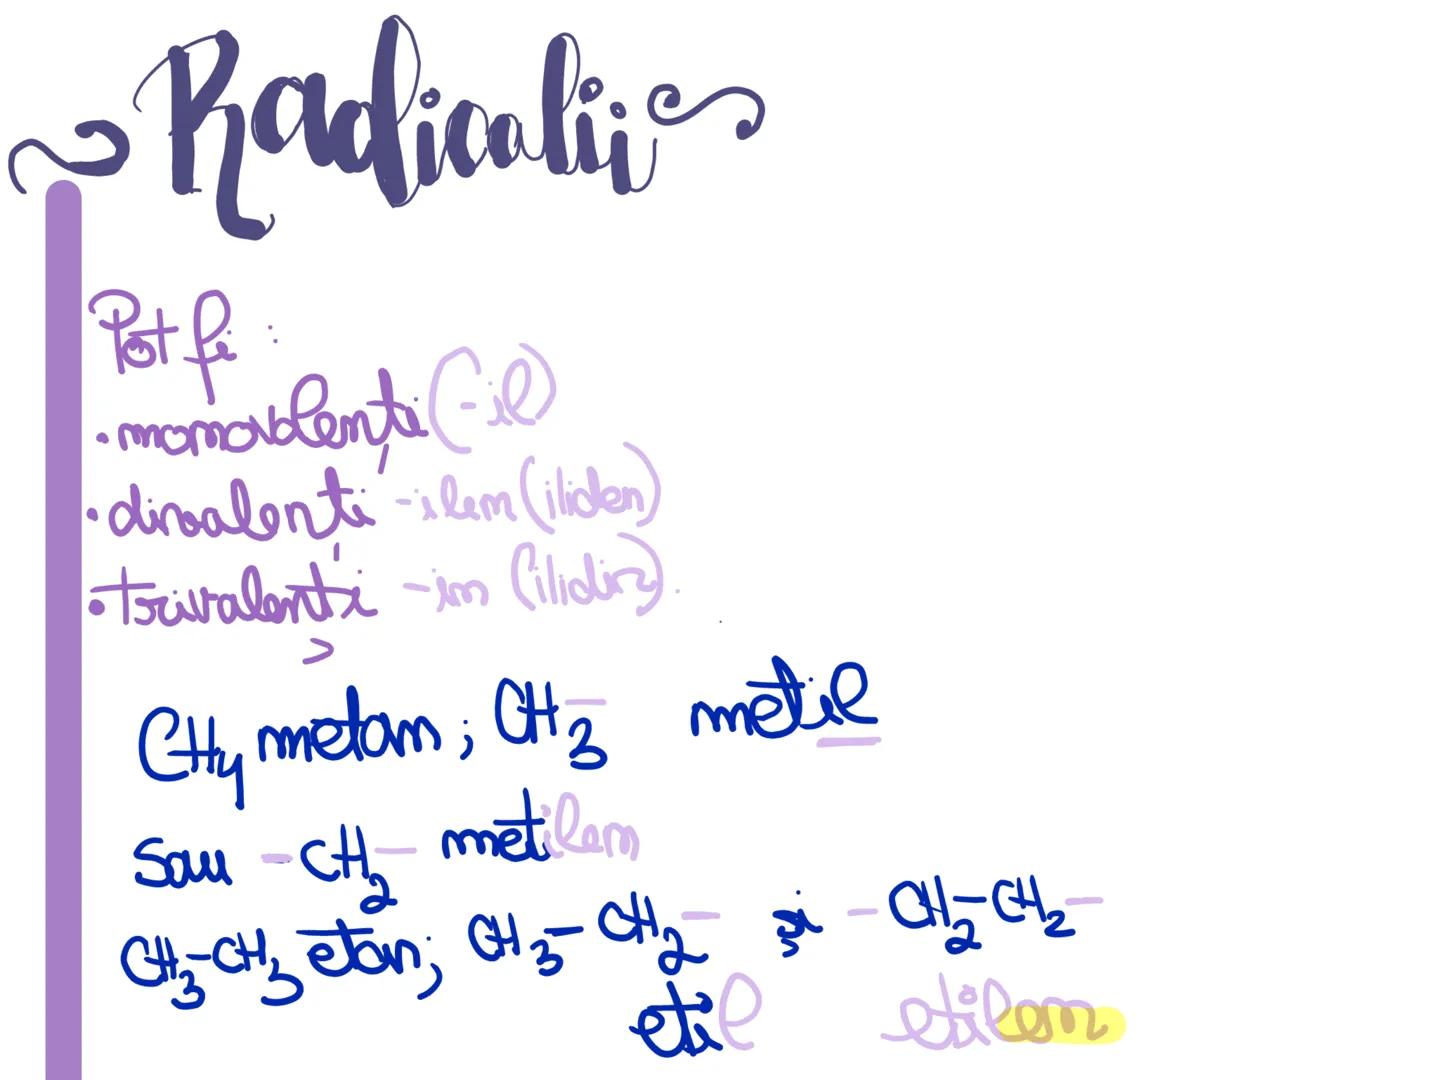 Radicalii
Pot fi :
• monovalenți (-il)
• divalenți -ilen (iliden)
• trivalenți -in (ilidin).
CH4 metan ; CH3- metil
sau -CH2- metilen
CH3-CH3 etan; CH3-CH2- și -CH2-CH2-
etil etilen